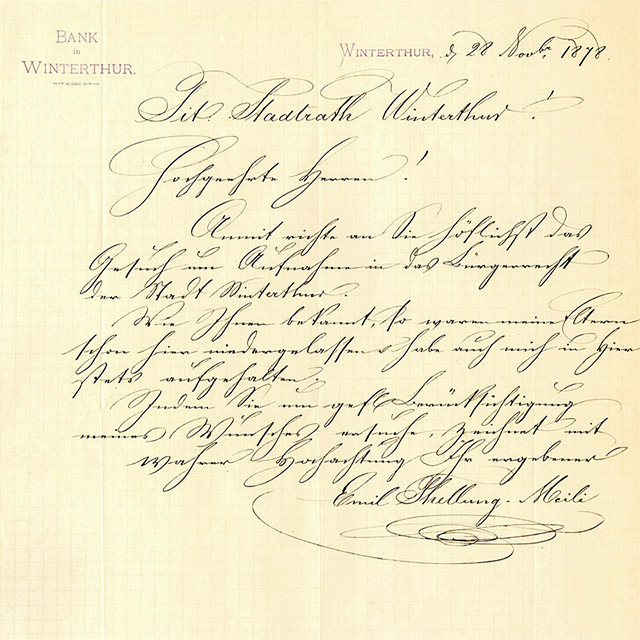 BANK
in
WINTERTHUR.
WINTERTHUR, d. 28 Novbr. 1878.
Tit. Stadtrath Winterthur!
Hochgeehrte Herren!
Anmit richte an Sie höflichst das
Gesuch um Aufnahme in das Bürgerrecht
der Stadt Winterthur.
Wie Ihnen bekannt, so waren meine Eltern
schon hier niedergelassen & habe auch mich in hier
stets aufgehalten.
Indem Sie um gefl. Berücksichtigung
meines Wunsches ersuche, zeichnet mit
wahrer Hochachtung Ihr ergebener
Emil -Meili